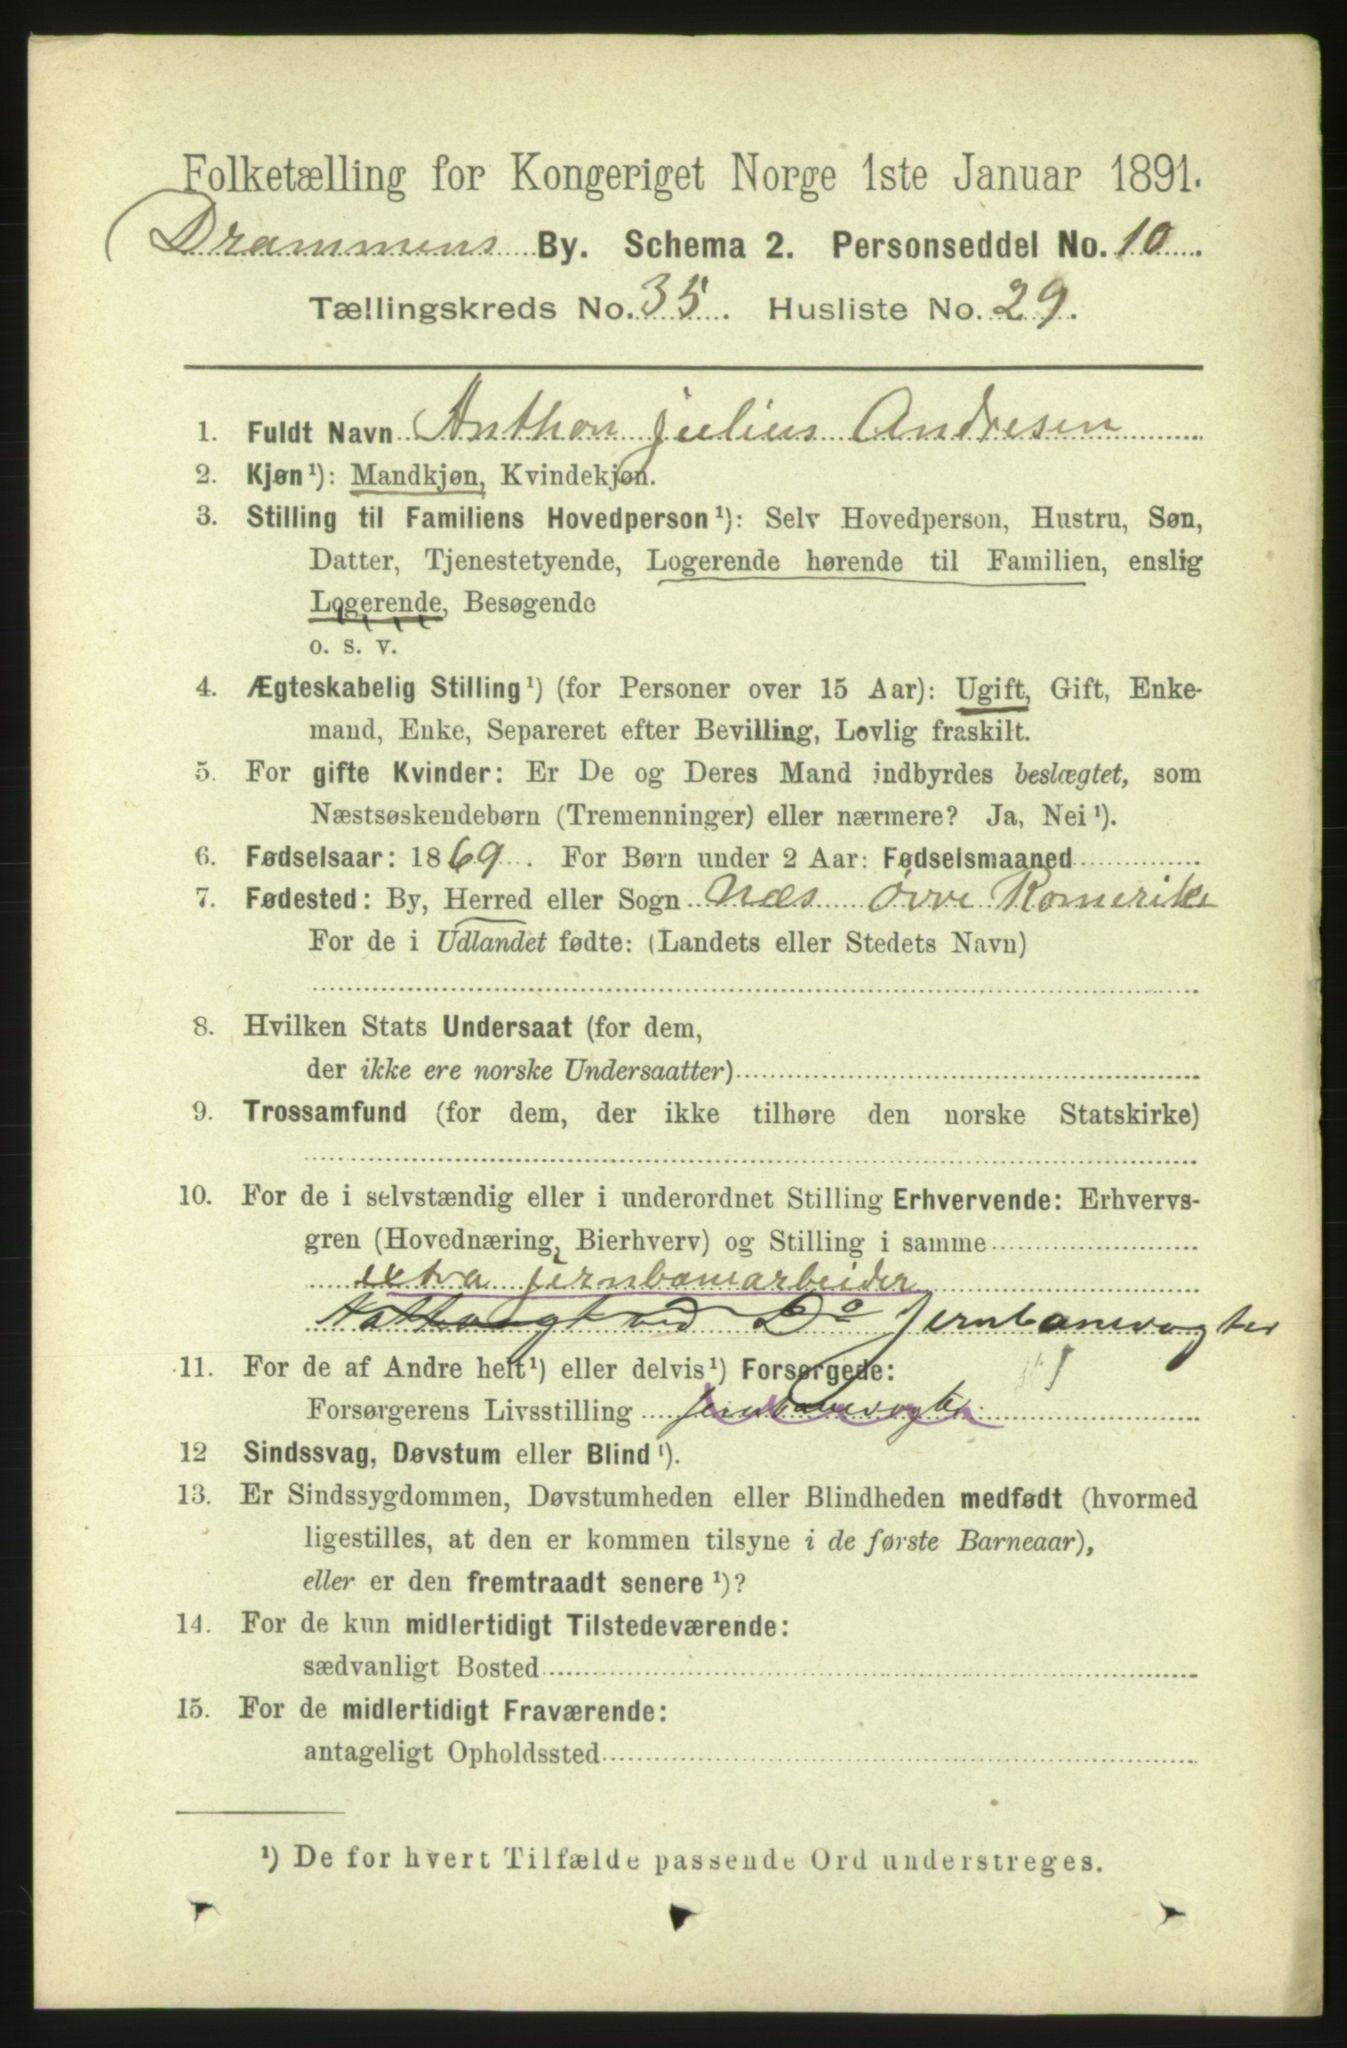 Folketælling for Kongeriget Norge 1ste Januar 1891.
Drammens By. Schema 2. Personseddel No. 10.
Tællingskreds No. 35. Husliste No. 29.
1. Fuldt Navn Anthon Julius Andresen
2. Kjøn¹): Mandkjøn, Kvindekjøn.
3. Stilling til Familiens Hovedperson¹): Selv Hovedperson, Hustru, Søn,
Datter, Tjenestetyende, Logerende hørende til Familien, enslig
Logerende, Besøgende
o. s. v.
4. Ægteskabelig Stilling¹) (for Personer over 15 Aar): Ugift, Gift, Enke-
mand, Enke, Separeret efter Bevilling, Lovlig fraskilt.
5. For gifte Kvinder: Er De og Deres Mand indbyrdes beslægtet, som
Næstsøskendebørn (Tremenninger) eller nærmere? Ja, Nei¹).
6. Fødselsaar: 1869. For Børn under 2 Aar: Fødselsmaaned
7. Fødested: By, Herred eller Sogn Næs øvre Romerike
For de i Udlandet fødte: (Landets eller Stedets Navn)
8. Hvilken Stats Undersaat (for dem,
der ikke ere norske Undersaatter)
9. Trossamfund (for dem, der ikke tilhøre den norske Statskirke)
10. For de i selvstændig eller i underordnet Stilling Erhvervende: Erhvervs-
gren (Hovednæring, Bierhverv) og Stilling i samme
extra jernbanearbeider
ved Do Jernbanevogter
11. For de af Andre helt¹) eller delvis¹) Forsørgede:
Forsørgerens Livsstilling Jernbanevogter
12 Sindssvag, Døvstum eller Blind¹).
13. Er Sindssygdommen, Døvstumheden eller Blindheden medfødt (hvormed
ligestilles, at den er kommen tilsyne i de første Barneaar),
eller er den fremtraadt senere¹)?
14. For de kun midlertidigt Tilstedeværende:
sædvanligt Bosted
15. For de midlertidigt Fraværende:
antageligt Opholdssted
¹) De for hvert Tilfælde passende Ord understreges.